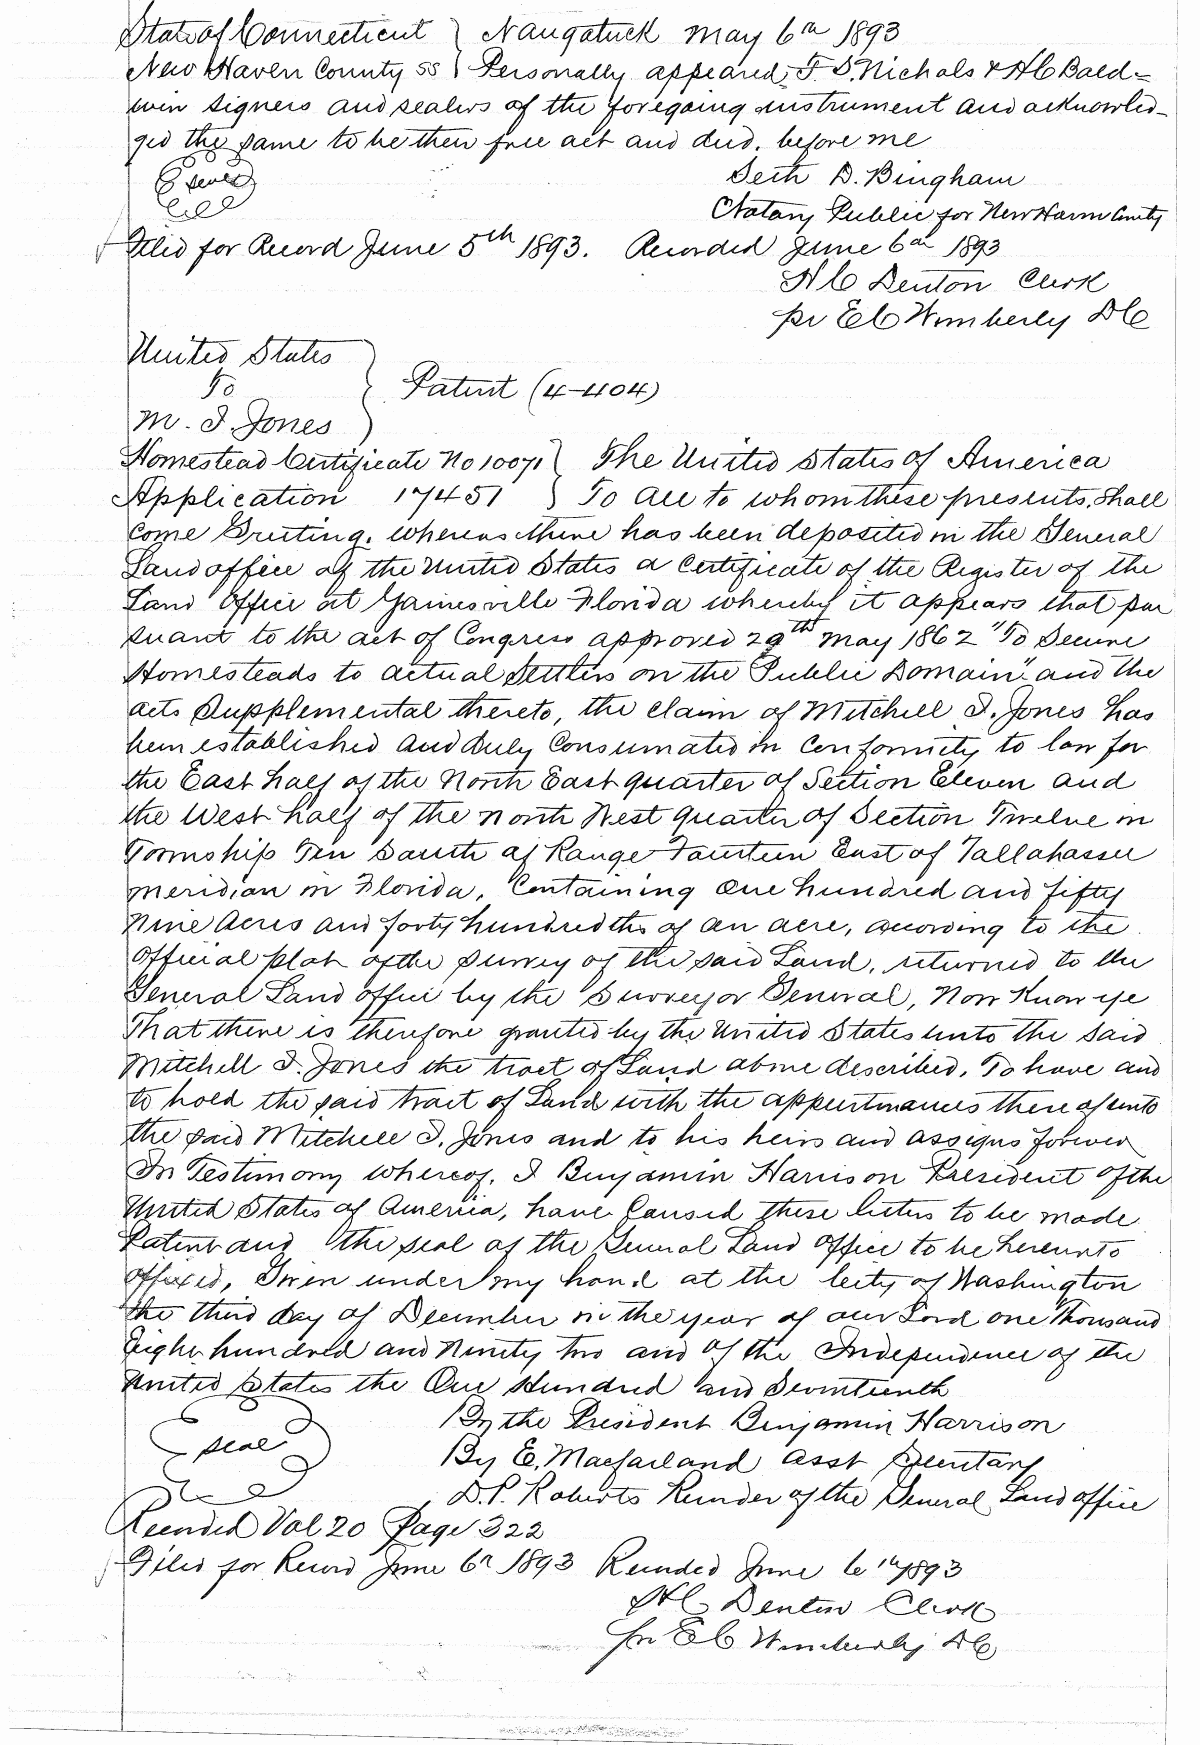 State of Connecticut } Naugatuck May 6th 1893
New Haven County SS } Personally appeared, F. S. Nichols & H C Bald=
win signers and sealers of the foregoing instrument and acknowled-
ged the same to be their free act and deed. before me
Seal
Seth D. Bingham
Notary Public for New Haven County
Filed for Record June 5th 1893. Recorded June 6th 1893
H C Denton Clerk
pr E C Wimberly D C
United States
To
M. I. Jones
Patent (4-404)
Homestead Certificate No 10071 } The United States of America
Application 17451 } To all to whom these presents. Shall
come Greeting. whereas there has been deposited in the General
Land office of the United States a Certificate of the Register of the
Land Office at Gainesville Florida whereby it appears that pur
suant to the act of Congress approved 20th May 1862 "To Secure
Homesteads to actual Settlers on the Public Domain" and the
acts Supplemental thereto, the claim of Mitchell I. Jones has
been established and duly Consumated in Conformity to law for
the East half of the North East quarter of Section Eleven and
the West half of the North West quarter of Section Twelve in
Township Ten South of Range Fourteen East of Tallahassee
Meridian in Florida, Containing One hundred and fifty
Nine Acres and forty hundredths of an acre, according to the
Official plat of the survey of the said Land, returned to the
General Land office by the Surveyor General, Now Know ye
That there is therefore granted by the United States unto the said
Mitchell I. Jones the tract of Land above described, To have and
to hold the said tract of Land with the appurtinances thereof unto
the said Mitchell I. Jones and to his heirs and assigns forever
In Testimony whereof, I Benjamin Harrison President of the
United States of America, have Caused these letters to be made
Patent and the seal of the General Land Office to be hereunto
affixed, Given under my hand at the City of Washington
the third day of December in the year of our Lord one Thousand
Eight hundred and Ninety two and of the Independence of the
United States the One Hundred and Seventeenth
By the President Benjamin Harrison
Seal
By E. Macfarland asst Secretary
D. P. Roberts Recorder of the General Land office
Recorded Vol 20 Page 322
Filed for Record June 6th 1893 Recorded June 6th 1893
H C Denton Clerk
pr E C Wimberly D C